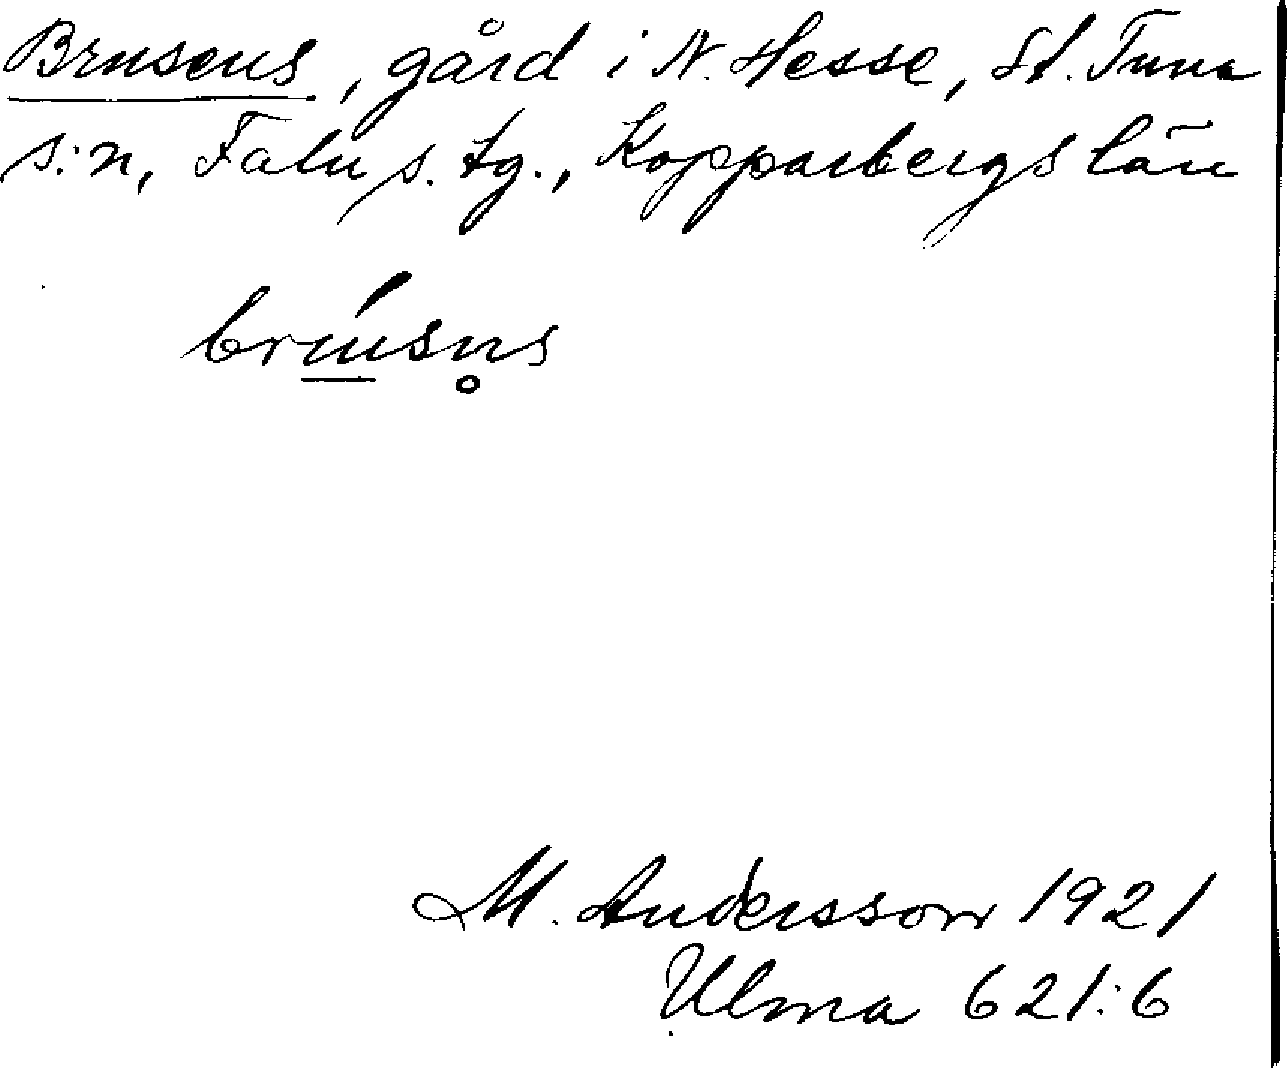 Brusens, gård i N. Hesse, St. Tuna
s:n, Falu s. tg., Kopparbergs län
brúsn̥s
M. Andersson 1921
Ulma 621:6